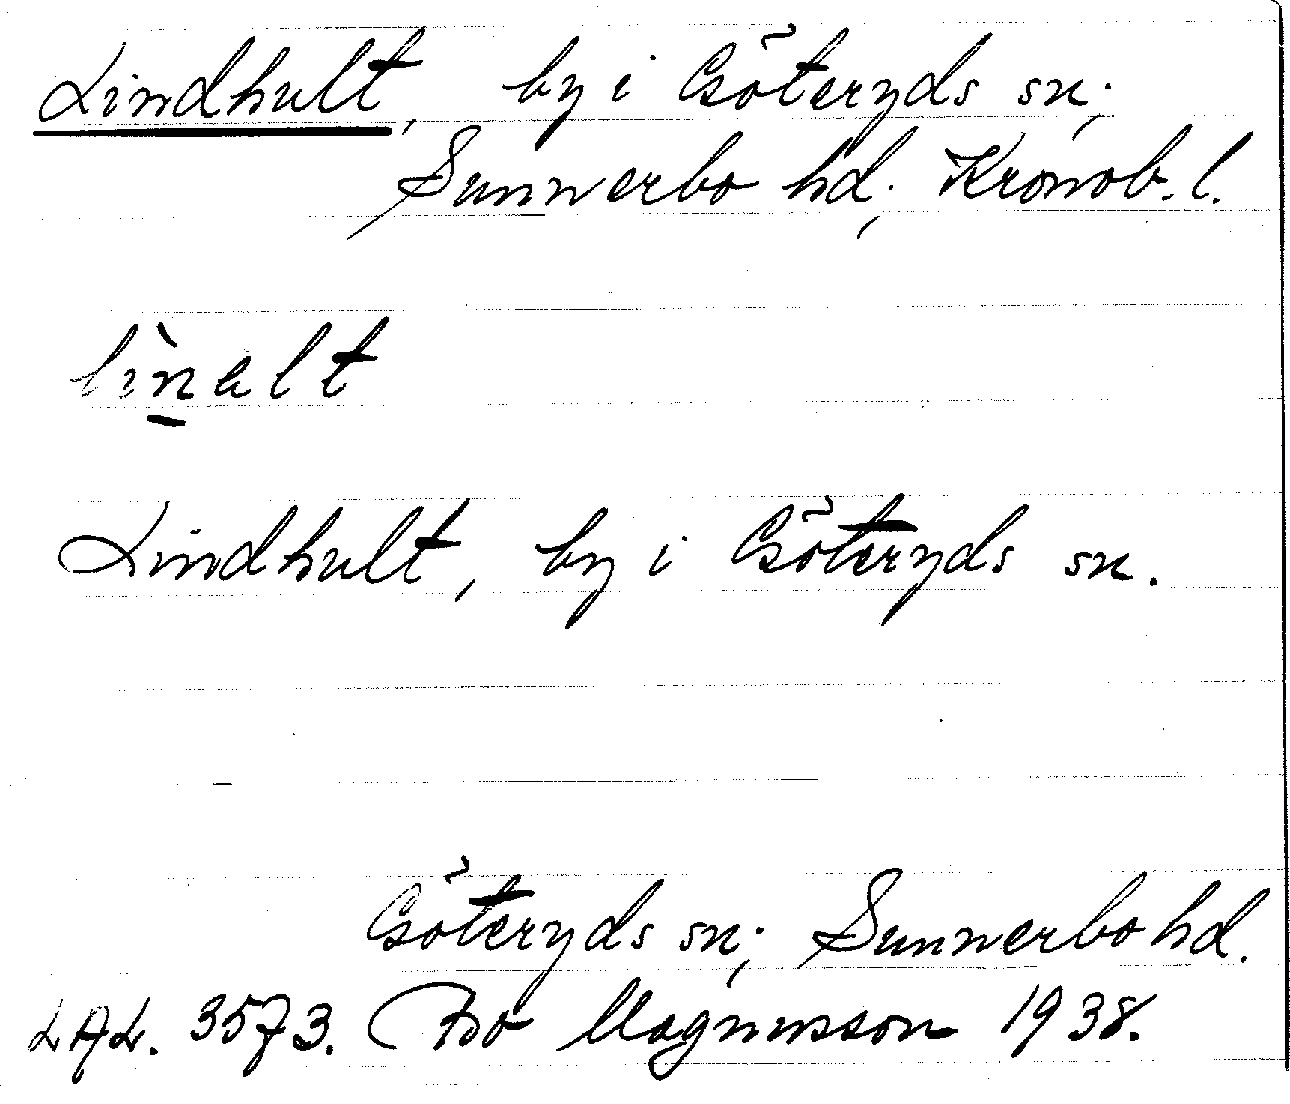 Lindhult, by i Göteryds sn.,
Sunnerbo hd, Kronob. l.
lìn̲alt
Lindhult, by i Göteryds sn.
Göteryds sn., Sunnerbo hd.
LAL. 3573. Bo Magnusson 1938.